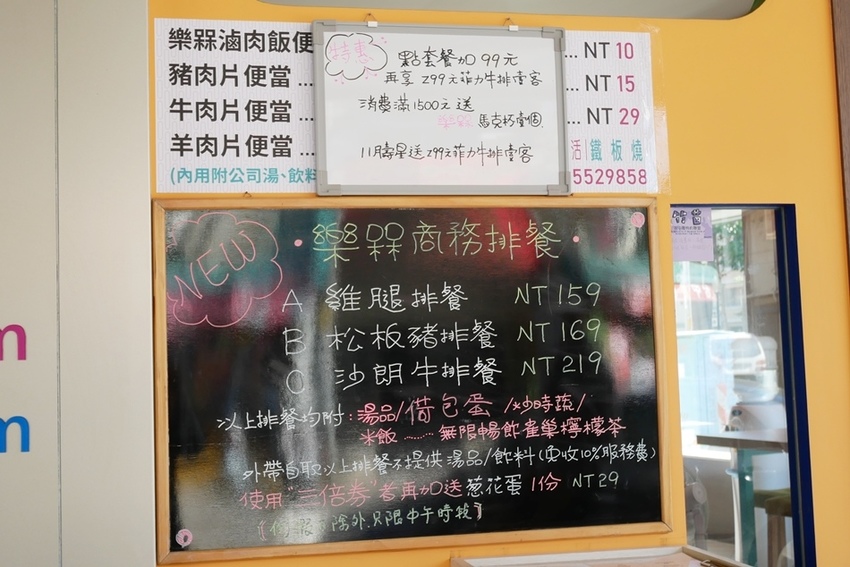 樂槑滷肉飯便
... NT 10
豬肉片便當 ...
... NT 15
牛肉片便當 ...
... NT 29
羊肉片便當 ...
活|鐵板燒
(內用附公司湯、飲料
5529858
特惠
點套餐加99元
再享299元菲力牛排壹客
消費滿1500元送
樂槑馬克杯壹個.
11月壽星送299元菲力牛排壹客
NEW
·樂槑商務排餐·
A 雞腿排餐 NT 159
B 松板豬排餐 NT 169
C 沙朗牛排餐 NT 219
以上排餐均附:湯品/荷包蛋/炒時蔬/
米飯 ........ 無限暢飲雀巢檸檬茶
外帶自取以上排餐不提供湯品/飲料(更收10%服務費)
使用"三倍券"者再加送蔥花蛋1份 NT 29
除外.只限中午時段
m
m